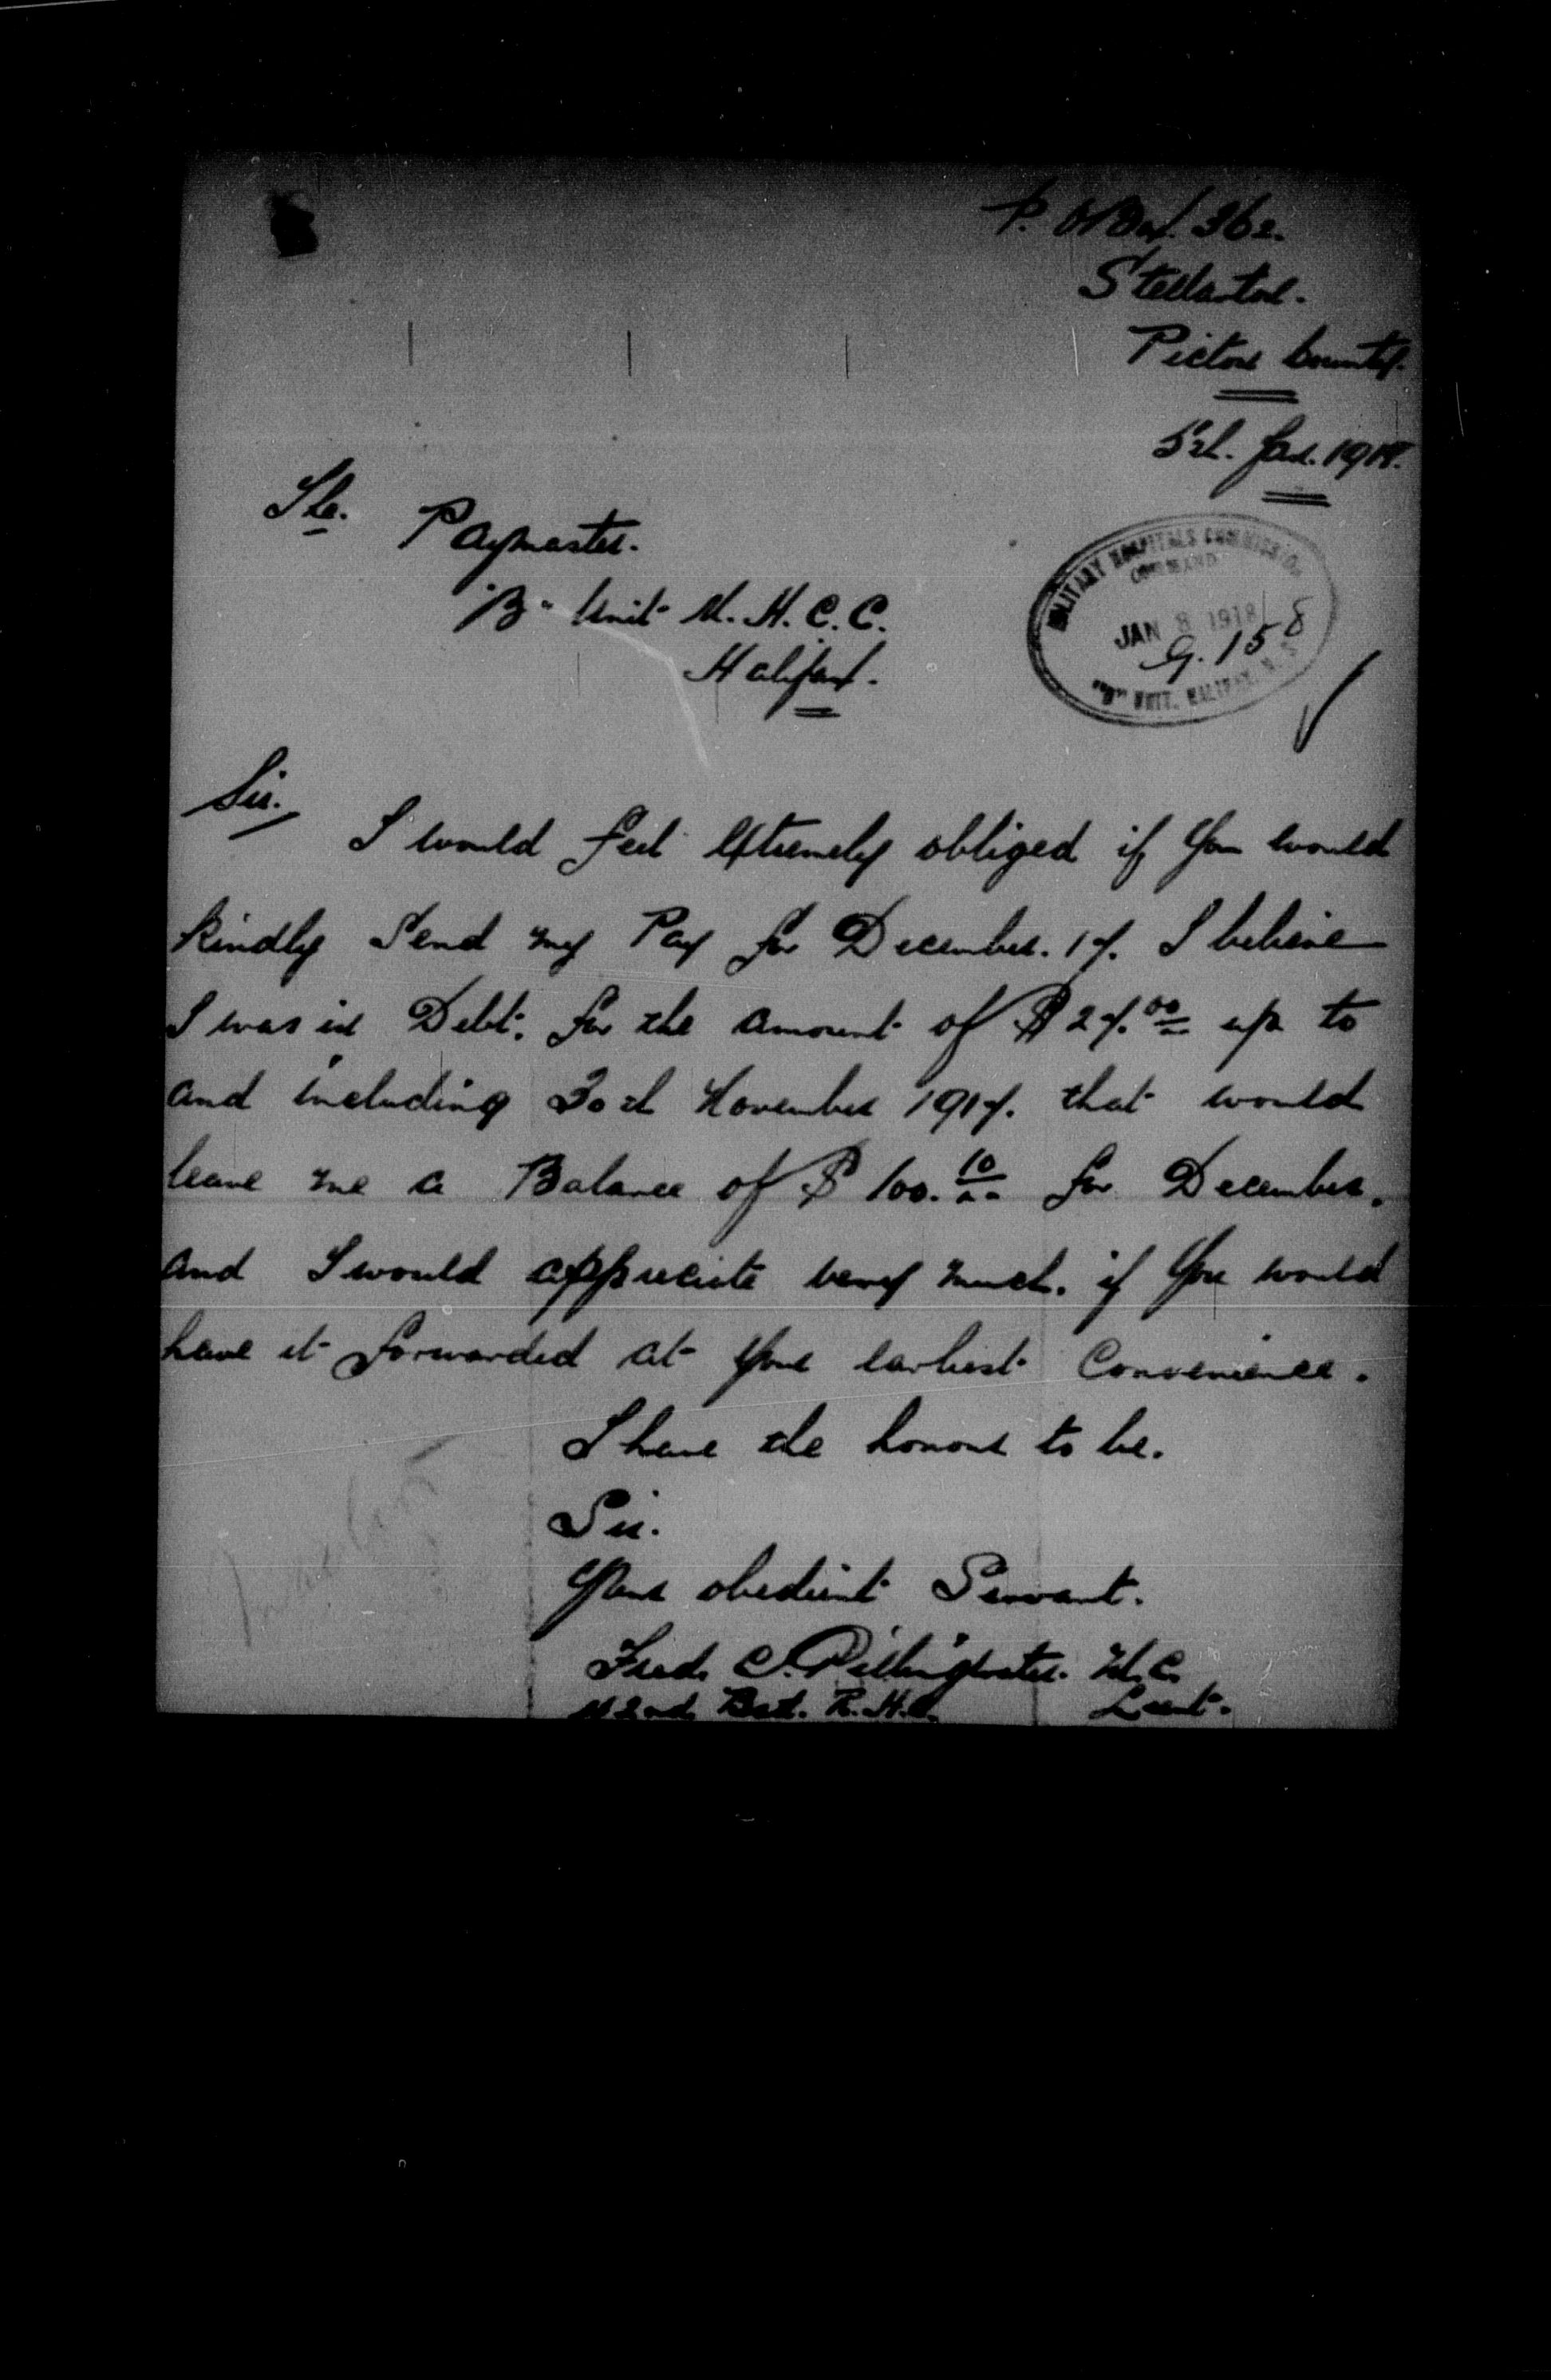 P. O Box. 362.
Stellarton.
Pictou County.
5th. Jan. 1918.
The. Paymaster.
"B" Unit M. H. C. C.
Halifax.
MILITARY HOSPITALS COMMISSION
COMMAND
JAN 8 1918
9.158
"B" UNIT. HALIFAX, N. S.
Sir.
I would feel extremely obliged if you would
kindly Send my Pay for December. 17. I believe
I was in Debt. for the amount of $27.00 up to
and including 30th November 1917. that would
leave me a Balance of $100.10 for December.
and I would appreciate very much. if you would
have it forwarded at your earliest Convenience.
I have the honour to be.
Sir.
Your obedient Servant.
Fred. C. M.C.
42nd Bat. R.H.C. Lieut.